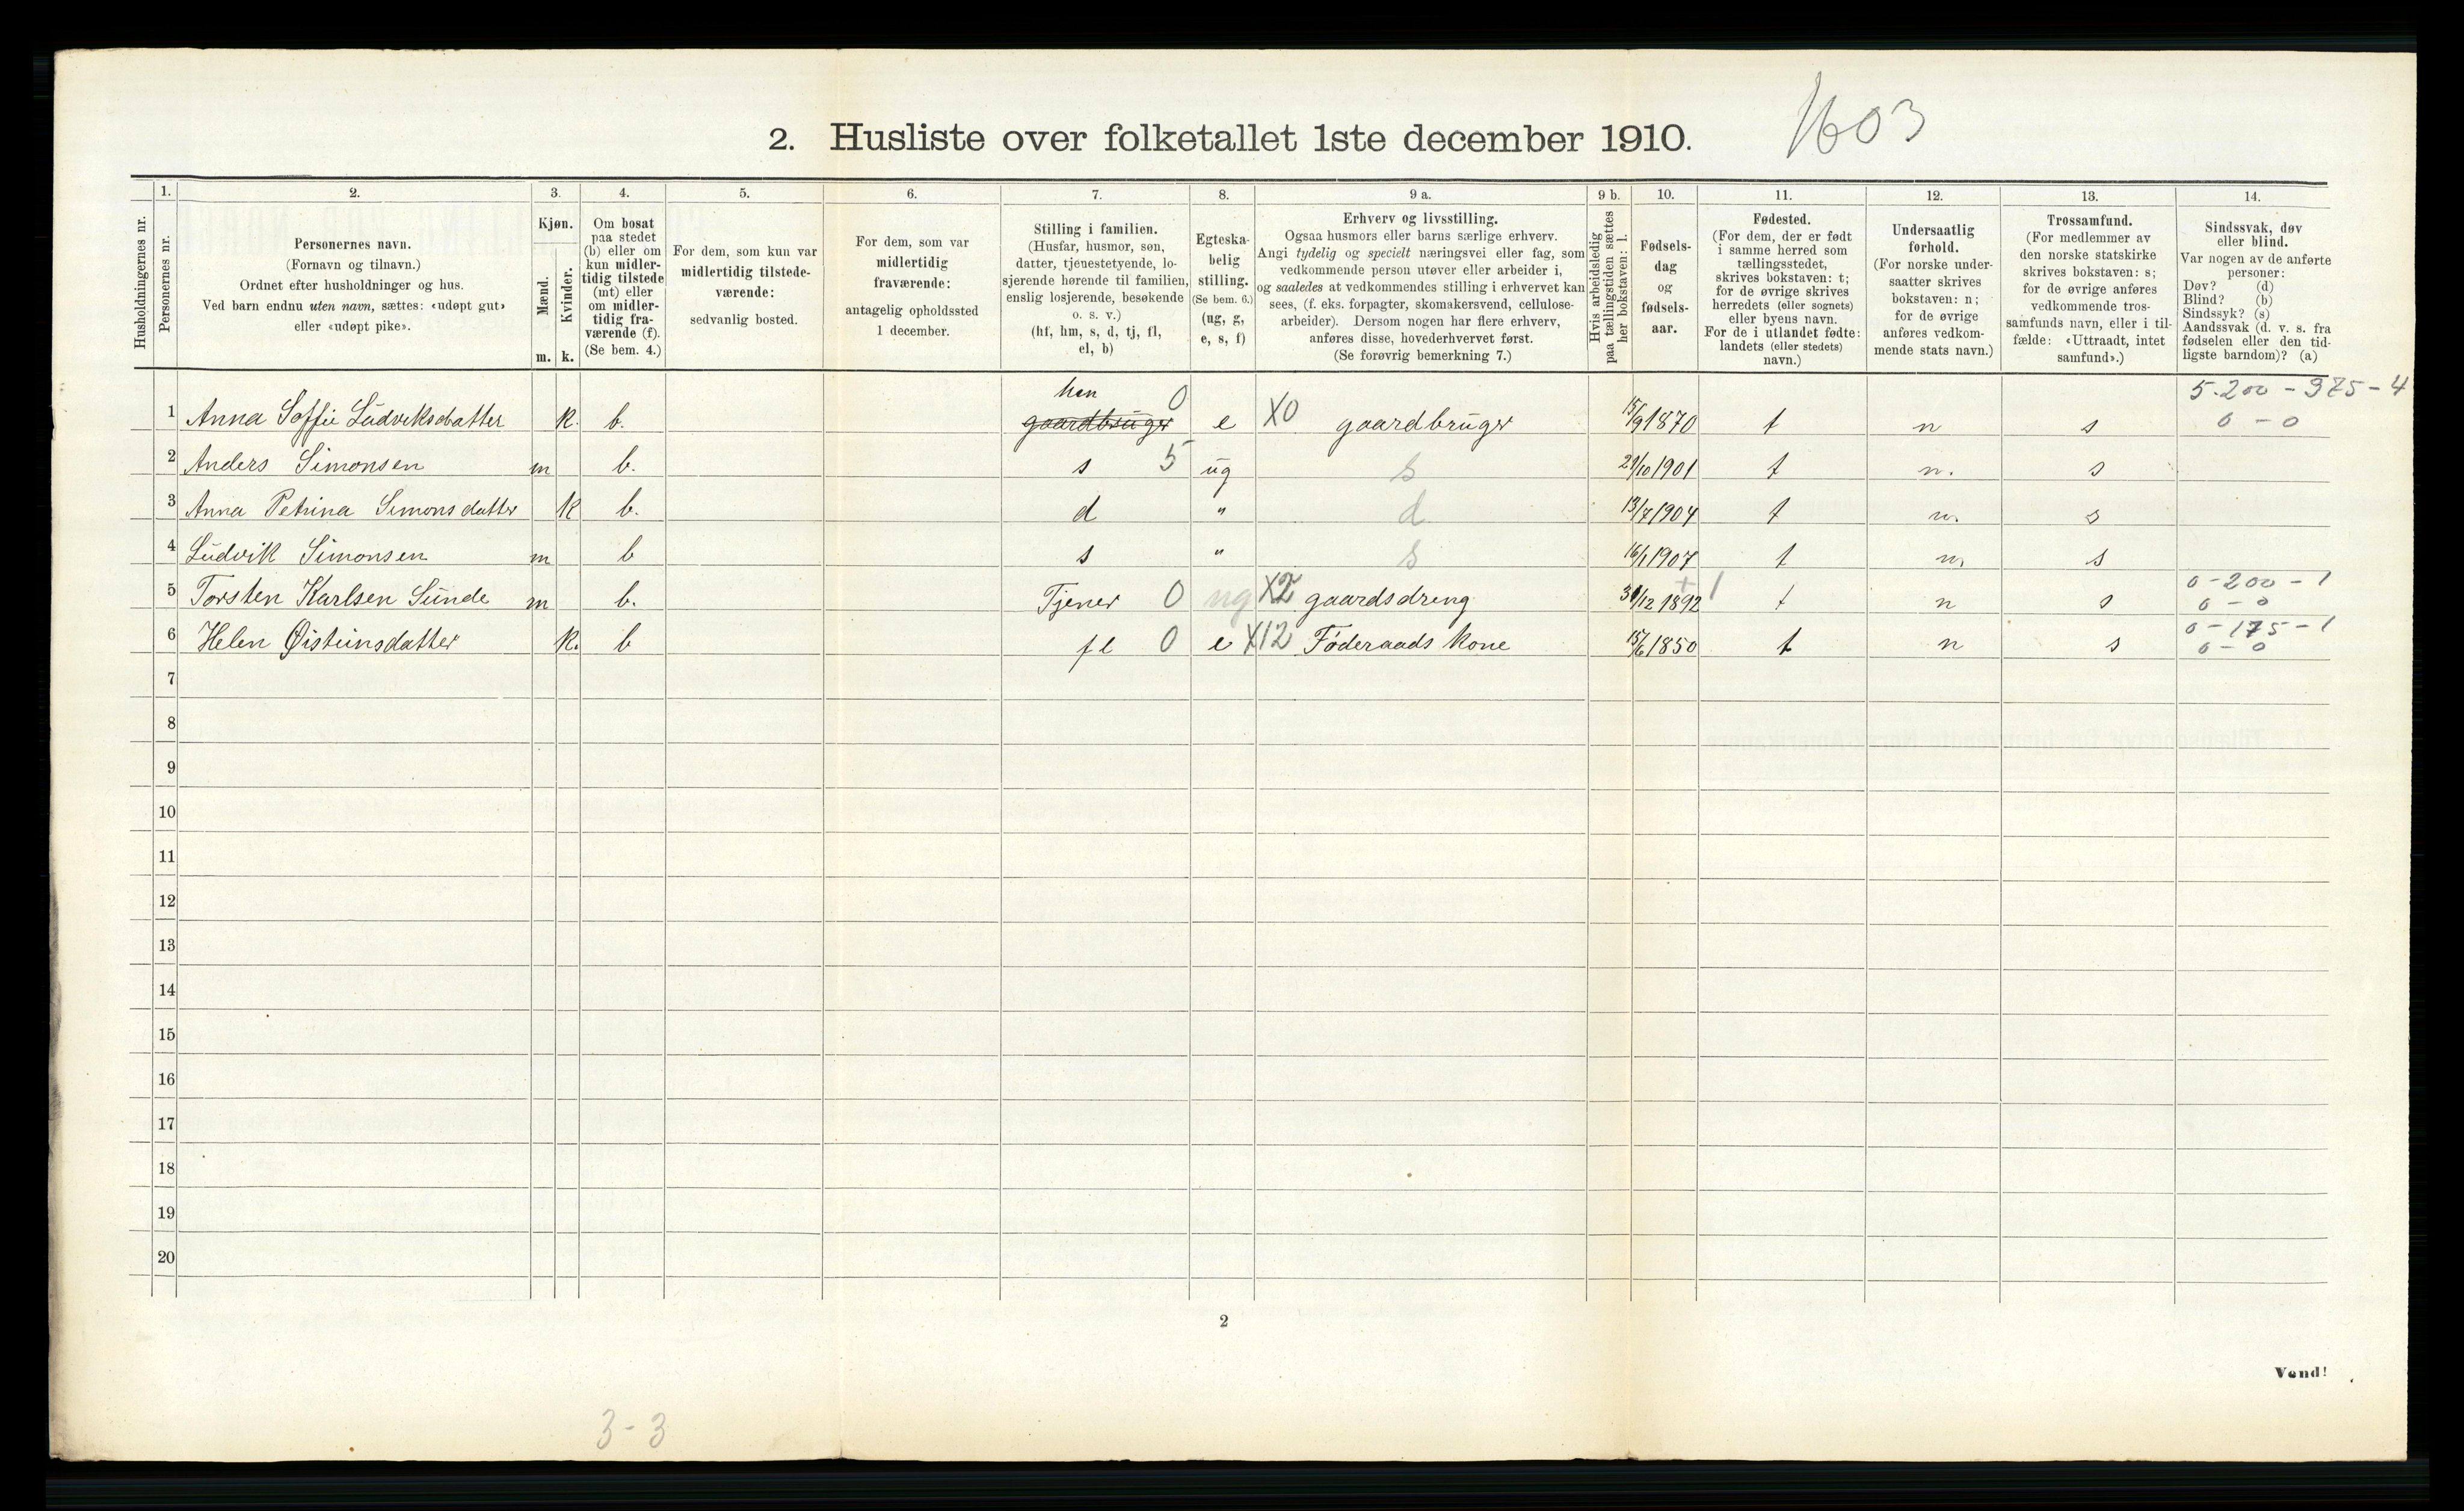 2. Husliste over folketallet 1ste december 1910.
1603
1. 2. 3. 4. 5. 6. 7. 8. 9 a. 9 b. 10. 11. 12. 13. 14.
Husholdningernes nr.
Personernes nr.
Personernes navn.
(Fornavn og tilnavn.)
Ordnet efter husholdninger og hus.
Ved barn endnu uten navn, sættes: «udøpt gut»
eller «udøpt pike».
Kjøn.
Mænd.
Kvinder.
m. k.
Om bosat
paa stedet
(b) eller om
kun midler-
tidig tilstede
(mt) eller
om midler-
tidig fra-
værende (f).
(Se bem. 4.)
For dem, som kun var
midlertidig tilstede-
værende:
sedvanlig bosted.
For dem, som var
midlertidig
fraværende:
antagelig opholdssted
1 december.
Stilling i familien.
(Husfar, husmor, søn,
datter, tjenestetyende, lo-
sjerende hørende til familien,
enslig losjerende, besøkende
o. s. v.)
(hf, hm, s, d, tj, fl,
el, b)
Egteska-
belig
stilling.
(Se bem. 6.)
(ug, g,
e, s, f)
Erhverv og livsstilling.
Ogsaa husmors eller barns særlige erhverv.
Angi tydelig og specielt næringsvei eller fag, som
vedkommende person utøver eller arbeider i,
og saaledes at vedkommendes stilling i erhvervet kan
sees, (f. eks. forpagter, skomakersvend, cellulose-
arbeider). Dersom nogen har flere erhverv,
anføres disse, hovederhvervet først.
(Se forøvrig bemerkning 7.)
Hvis arbeidsledig
paa tællingstiden sættes
her bokstaven: l.
Fødsels-
dag
og
fødsels-
aar.
Fødested.
(For dem, der er født
i samme herred som
tællingsstedet,
skrives bokstaven: t;
for de øvrige skrives
herredets (eller sognets)
eller byens navn.
For de i utlandet fødte:
landets (eller stedets)
navn.)
Undersaatlig
forhold.
(For norske under-
saatter skrives
bokstaven: n;
for de øvrige
anføres vedkom-
mende stats navn.)
Trossamfund.
(For medlemmer av
den norske statskirke
skrives bokstaven: s;
for de øvrige anføres
vedkommende tros-
samfunds navn, eller i til-
fælde: «Uttraadt, intet
samfund».)
Sindssvak, døv
eller blind.
Var nogen av de anførte
personer:
Døv? (d)
Blind? (b)
Sindssyk? (s)
Aandssvak (d. v. s. fra
fødselen eller den tid-
ligste barndom)? (a)
hm 0 5-200-375-4
1 Anna Soffie Ludviksdatter k. b. gaardbruger e X0 gaardbruger 15/9 1870 t n s 0-0
2 Anders Simonsen m b. s 5 ug s 29/10 1901 t n. s
3 Anna Petrina Simonsdatter k b. d " d 13/7 1904 t n. s
4 Ludvik Simonsen m b s " s 16/1 1907 t n. s
0-200-1
5 Torsten Karlsen Sunde m b. Tjener 0 ug X2 gaardsdreng 31/12 1892 + 1 t n s 0-0
0-175-1
6 Helen Øisteinsdatter k. b fl 0 e X12 Føderaads Kone 15/6 1850 t n s 0-0
7
8
9
10
11
12
13
14
15
16
17
18
19
20
2
Vend!
3-3